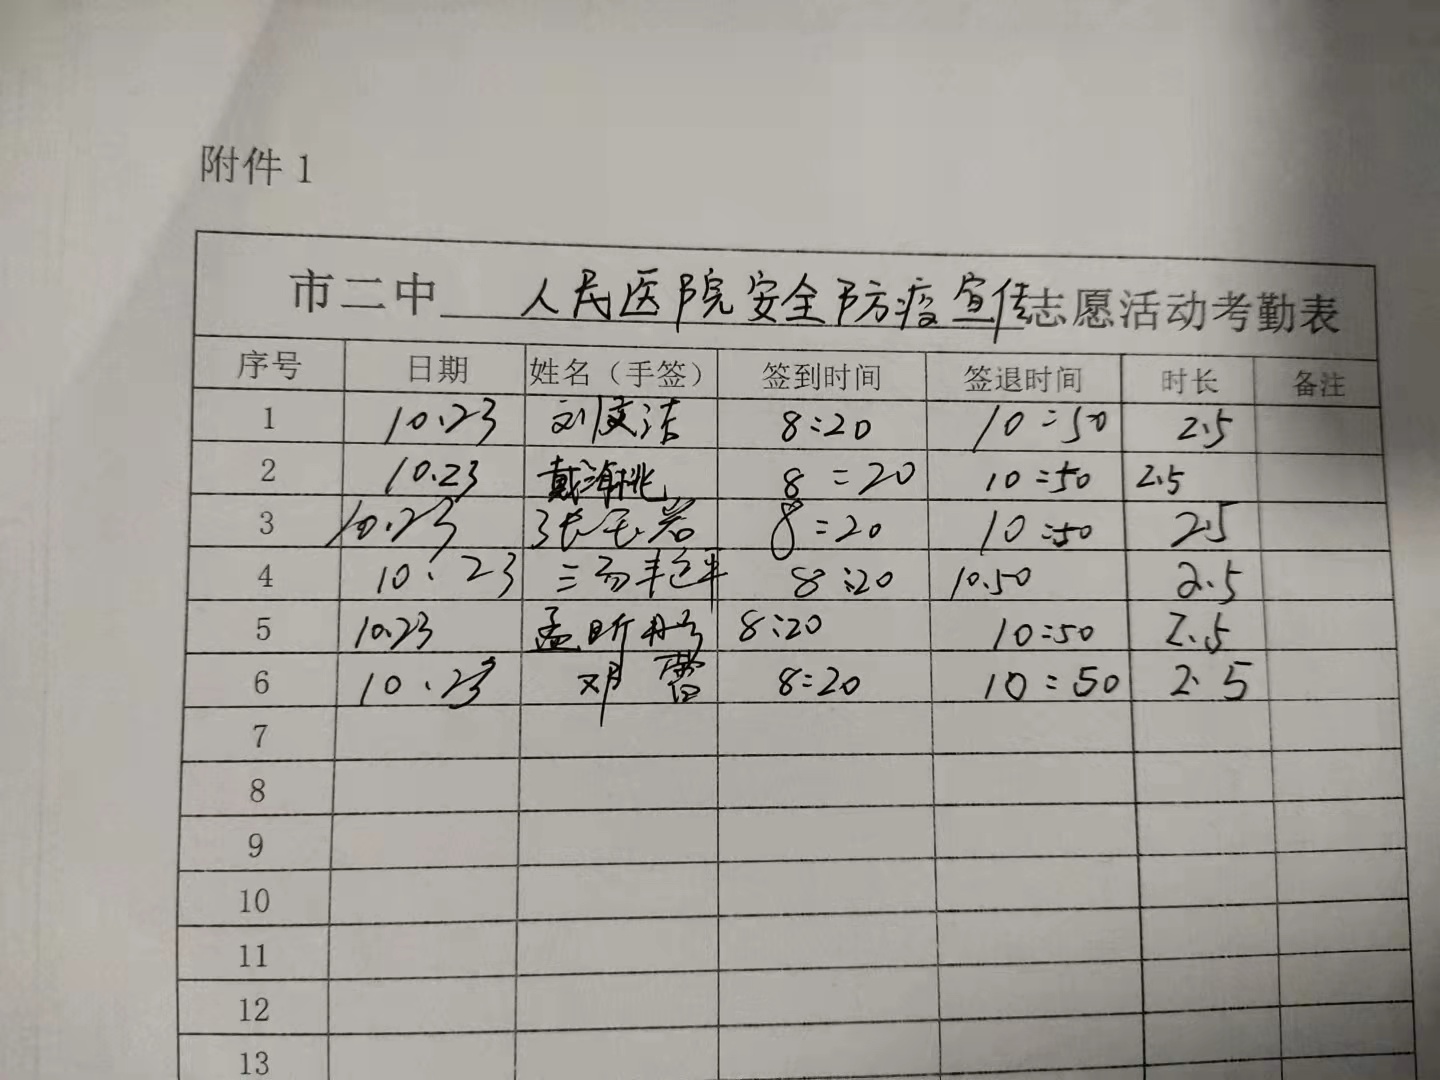 附件1
市二中 人民医院安全防疫宣传志愿活动考勤表
序号 日期 姓名（手签） 签到时间 签退时间 时长 备注
1 10.23 刘文洁 8:20 10:50 2.5
2 10.23 戴海桃 8:20 10:50 2.5
3 10.23 张玉岩 8:20 10:50 2.5
4 10.23 8:20 10.50 2.5
5 10.23 孟昕彤 8:20 10:50 2.5
6 10.23 邓蕾 8:20 10:50 2.5
7
8
9
10
11
12
13